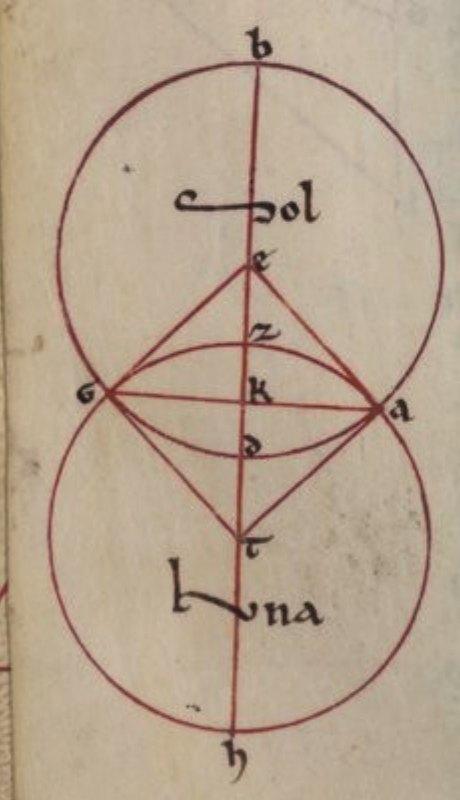 b
Sol
e
z
G k a
d
t
luna
h